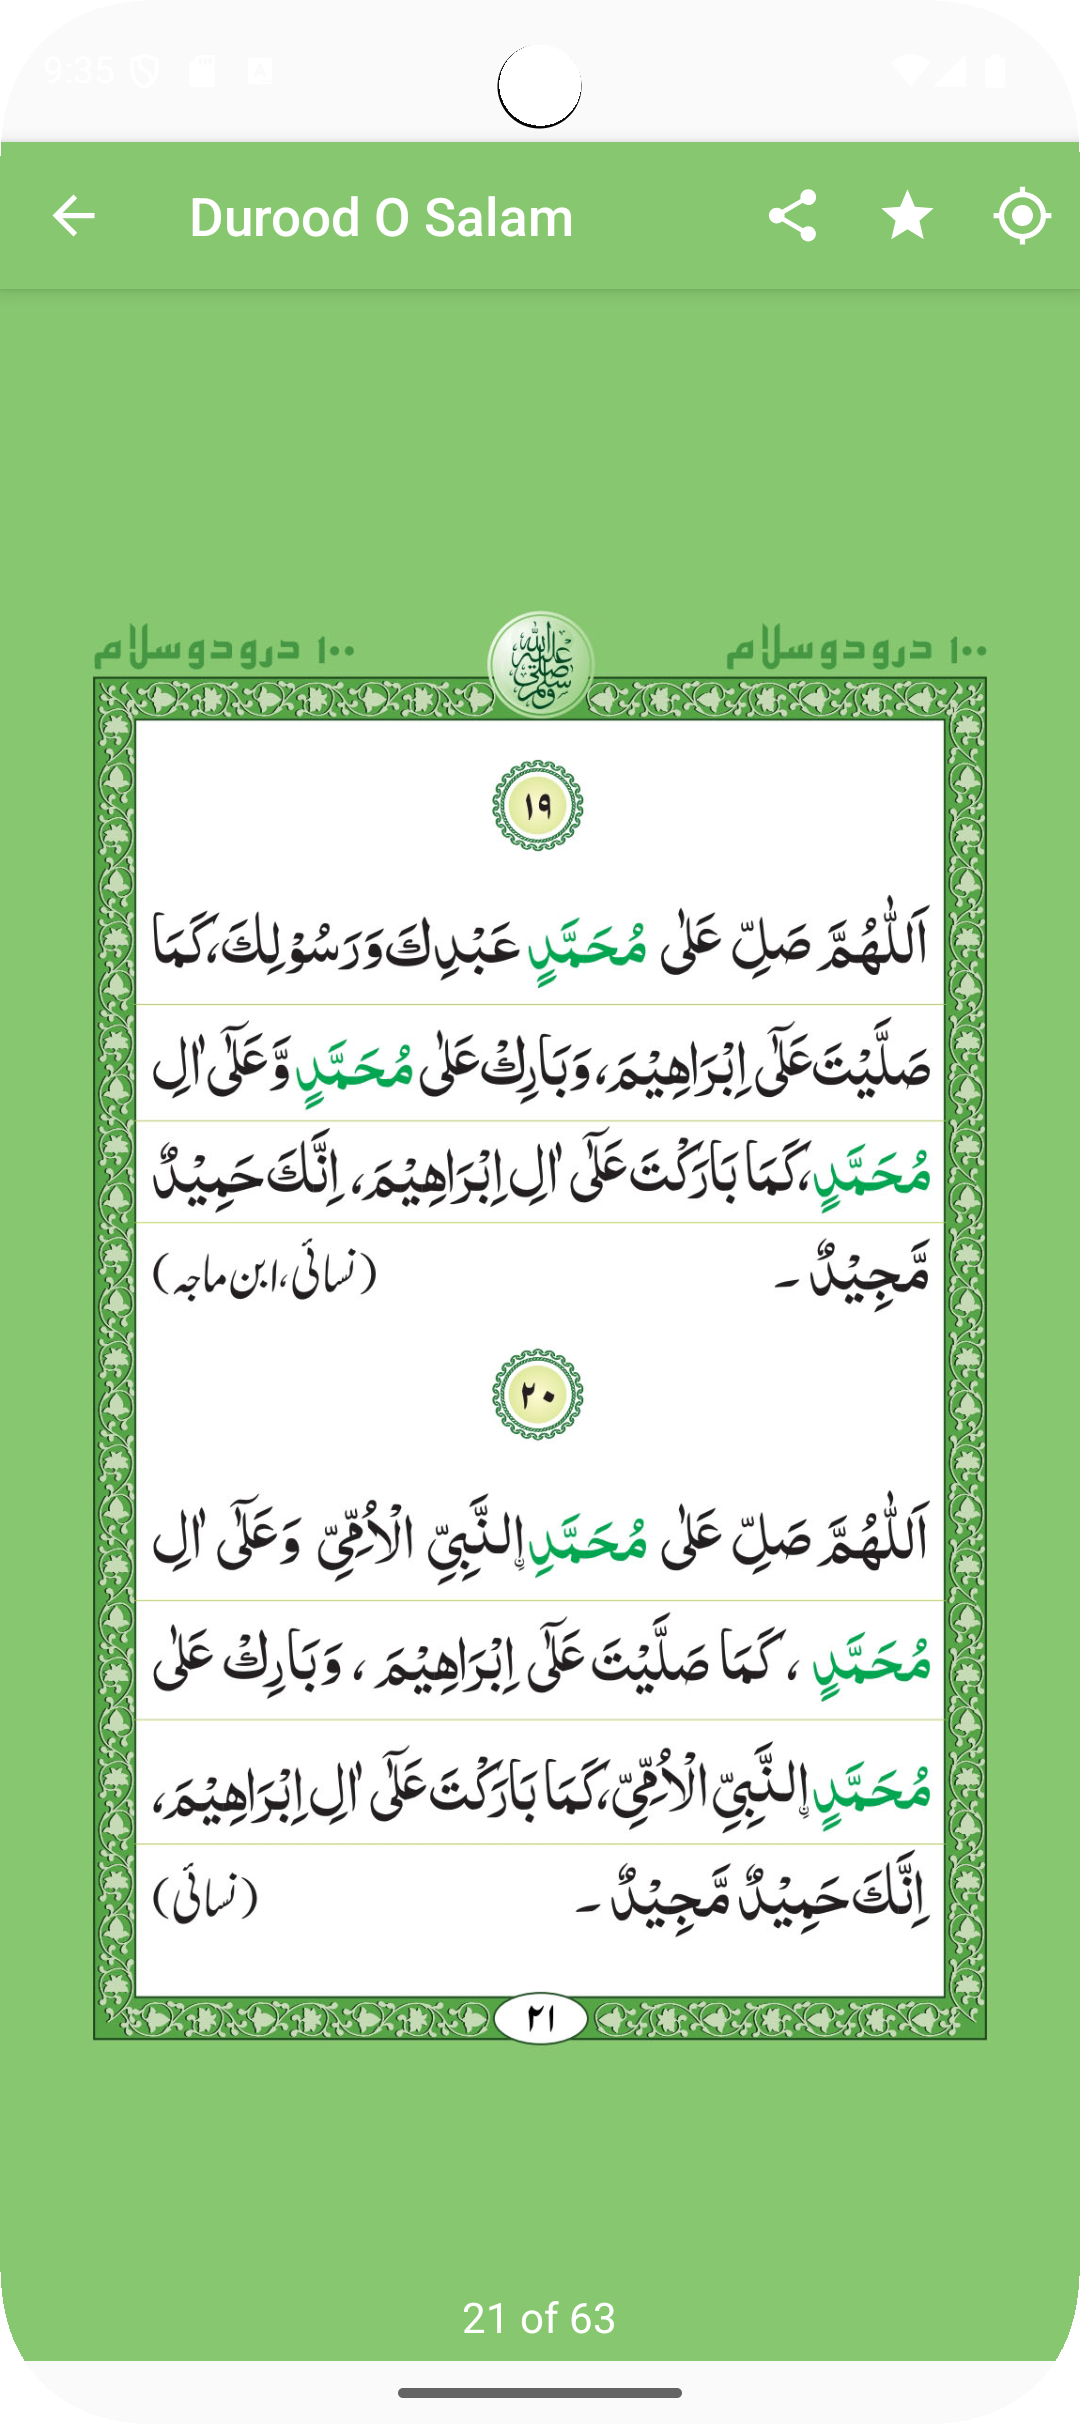 9:35
Durood O Salam
۱۰۰ درود و سلام
۱۰۰ درود و سلام
صلى الله عليه وسلم
۱۹
اَللّٰهُمَّ صَلِّ عَلٰى مُحَمَّدٍ عَبْدِكَ وَرَسُوْلِكَ، كَمَا
صَلَّيْتَ عَلٰٓى اِبْرَاهِيْمَ، وَبَارِكْ عَلٰى مُحَمَّدٍ وَّعَلٰٓى اٰلِ
مُحَمَّدٍ، كَمَا بَارَكْتَ عَلٰٓى اٰلِ اِبْرَاهِيْمَ، اِنَّكَ حَمِيْدٌ
مَّجِيْدٌ ۔ (نسائی، ابن ماجہ)
۲۰
اَللّٰهُمَّ صَلِّ عَلٰى مُحَمَّدِ اِۨلنَّبِيِّ الْاُمِّيِّ وَعَلٰٓى اٰلِ
مُحَمَّدٍ ، كَمَا صَلَّيْتَ عَلٰٓى اِبْرَاهِيْمَ ، وَبَارِكْ عَلٰى
مُحَمَّدٍ اِۨلنَّبِيِّ الْاُمِّيِّ، كَمَا بَارَكْتَ عَلٰٓى اٰلِ اِبْرَاهِيْمَ،
اِنَّكَ حَمِيْدٌ مَّجِيْدٌ ۔ (نسائی)
۲۱
21 of 63